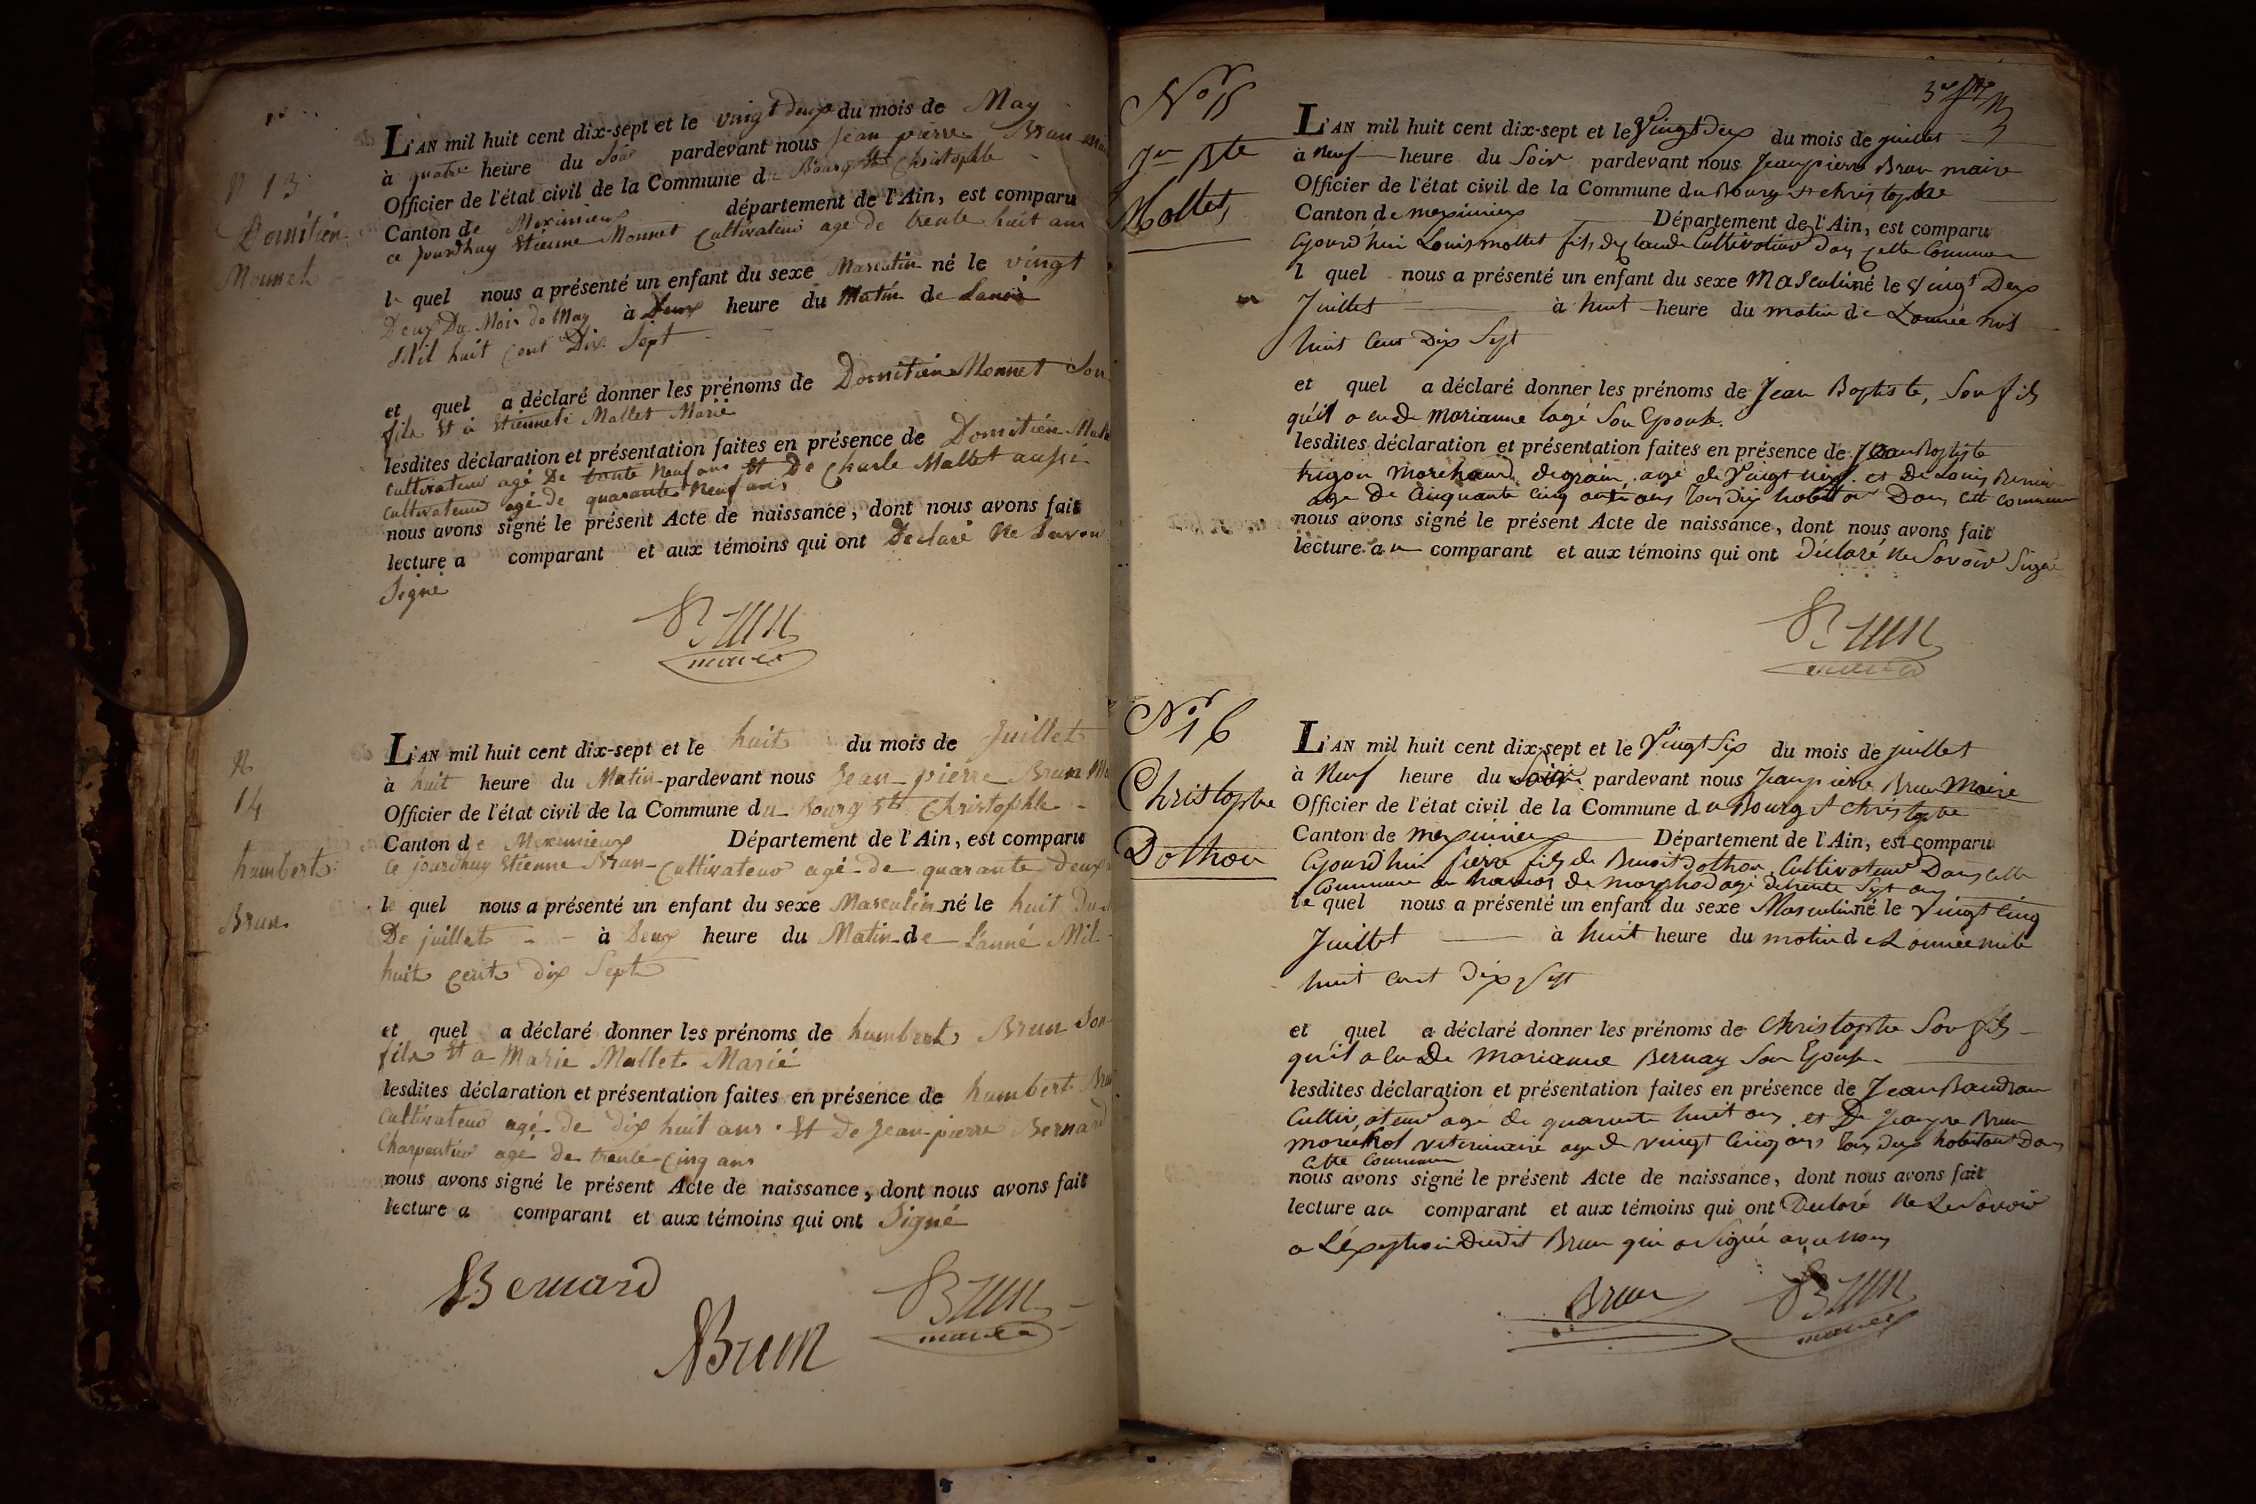 N 13
Domitien
Monnet
L'AN mil huit cent dix-sept et le vingt deux du mois de May
à quatre heure du Soir pardevant nous Jean pierre Brun
Officier de l'état civil de la Commune d Bourg St Christophle
Canton de Meximieux département de l'Ain, est comparu
ce jourdhuy Etienne Monnet Cultivateur age de trente huit ans
le quel nous a présenté un enfant du sexe Masculin né le vingt
Deux Du Mois de May à Deux heure du Matin de Lannée
Mil huit cent Dix Sept
et quel a déclaré donner les prénoms de Domitien Monnet Son
fils Et a Etiennete Mallet Marié
lesdites déclaration et présentation faites en présence de Domitién
cultivateur agé De trente Neuf ans Et De Charle Mallet aussi
cultivateur agé de quarante Neuf ans
nous avons signé le présent Acte de naissance, dont nous avons fait
lecture a comparant et aux témoins qui ont Declaré Ne Savoir
Signé
Brun
maire
N
14
humbert
Brun
L'AN mil huit cent dix-sept et le huit du mois de Juillet
à huit heure du Matin pardevant nous Jean pierre Brun
Officier de l'état civil de la Commune du Bourg St Christophle
Canton de Meximieux Département de l'Ain, est comparu
Ce jourdhuy Etienne Brun Cultivateur agé de quarante deux
le quel nous a présenté un enfant du sexe Masculin né le huit Du
De juillet à Deux heure du Matin de L'anné Mil
huit cent dix Sept
et quel a déclaré donner les prénoms de humbert Brun Son
fils Et a Marie Mallet Marié
lesdites déclaration et présentation faites en présence de humbert Brun
Cultivateur agé de dix huit ans Et De Jean pierre Bernard
Charpentier agé De trente Cinq ans
nous avons signé le présent Acte de naissance, dont nous avons fait
lecture a comparant et aux témoins qui ont Signé
Bernard
Brun
Brun
maire
No 15
Jn Bte
Mollet
L'AN mil huit cent dix-sept et le Vingt Deux du mois de juillet
à Neuf heure du Soir pardevant nous Jean pierre Brun maire
Officier de l'état civil de la Commune du Bourg St christophe
Canton de meximieux Département de l'Ain, est comparu
Cejourd'hui Louis mollet fils de Claude Cultivateur Dans cette Commune
l quel nous a présenté un enfant du sexe Masculin né le Vingt Deux
Juillet à huit heure du matin de Lannée mil
huit Cent Dix Sept
et quel a déclaré donner les prénoms de Jean Baptiste, Son fils
qu'il a eu de marianne lagé Son Epouse.
lesdites déclaration et présentation faites en présence de Jean Baptiste
trigon marchand de grain, agé de Vingt neuf et De Louis
age De Cinquante Cinq ans tous Deux habitans Dans Cette Commune
nous avons signé le présent Acte de naissance, dont nous avons fait
lecture au comparant et aux témoins qui ont Déclaré Ne Savoir Signé
Brun
maire
No 16
Christophe
Dothou
L'AN mil huit cent dix-sept et le Vingt Six du mois de juillet
à Neuf heure du Soir pardevant nous Jean pierre Brun Maire
Officier de l'état civil de la Commune d u Bourg St Christophe
Canton de meximieux Département de l'Ain, est comparu
Cejourd'hui pierre fils de Benoit Dothou, Cultivateur Dans cette
Commune au hameau de agé de trente Sept ans
le quel nous a présenté un enfant du sexe Masculin né le Vingt Cinq
Juillet à huit heure du matin de Lannée mil
huit cent Dix Sept
et quel a déclaré donner les prénoms de Christophe Son fils
qu'il a Eu De Marianne Bernay Son Epouse
lesdites déclaration et présentation faites en présence de Jean Baudran
Cultivateur agé de quarante huit ans et De Brun
maréchal veterinaire age de vingt Cinq ans tous Deux habitant Dans
Cette Commune
nous avons signé le présent Acte de naissance, dont nous avons fait
lecture au comparant et aux témoins qui ont Declaré Ne Le Savoir
a L'éxeption Dudit Brun qui a Signé avec nous
Brun
Brun
maire